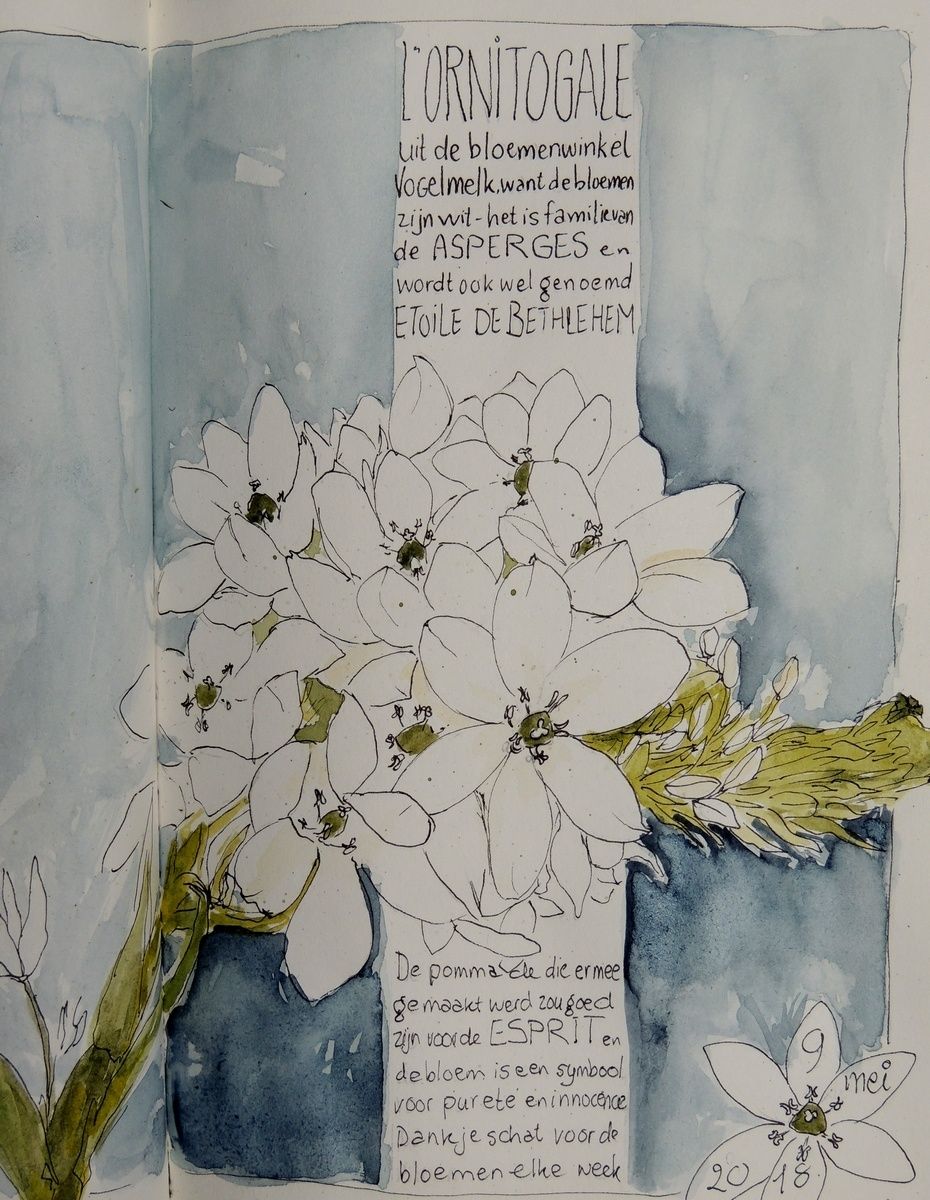 L'ORNITOGALE
uit de bloemenwinkel
Vogelmelk, want de bloemen
zijn wit - het is familie van
de ASPERGES en
wordt ook wel genoemd
ETOILE DE BETHLEHEM
De pommade die ermee
gemaakt werd zou goed
zijn voor de ESPRIT en
de bloem is een symbool
voor pureté en innocence
Dankje schat voor de
bloemen elke week
9
mei
2018